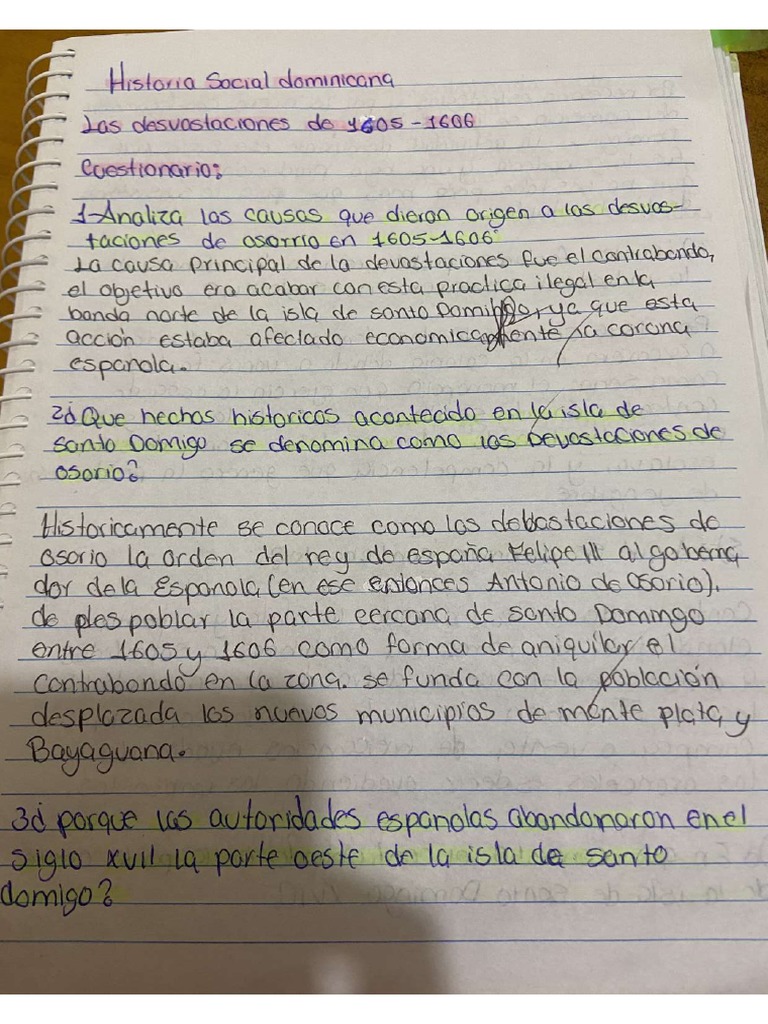 Historia Social dominicana
Las desvastaciones de 1605-1606
Cuestionario:
1-Analiza las causas que dieron origen a las desvas-
taciones de osorrio en 1605-1606
La causa principal de la devastaciones fue el contrabando,
el objetivo era acabar con esta practica ilegal en la
banda norte de la isla de santo Domingo, ya que esta
acción estaba afectado economicamente la corona
espanola.
2¿Que hechos historicos acontecido en la isla de
santo Domigo se denomina como las Devastaciones de
osorio?
Historicamente se conoce como las debastaciones de
osorio la orden del rey de españa Felipe III al goberna
dor de la Espanola (en ese entonces Antonio de Osorio),
de despoblar la parte cercana de santo Domingo
entre 1605 y 1606 como forma de aniquilar el
contrabando en la zona. se funda con la población
desplazada los nuevos municipios de monte plata y
Bayaguana.
3¿porque las autoridades espanolas abandonaron en el
siglo XVII la parte oeste de la isla de santo
domigo?